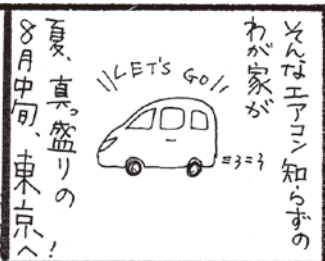 そんなエアコン知らずの
わが家が
\\LET'S GO//
夏、真っ盛りの
8月中旬、東京へ!